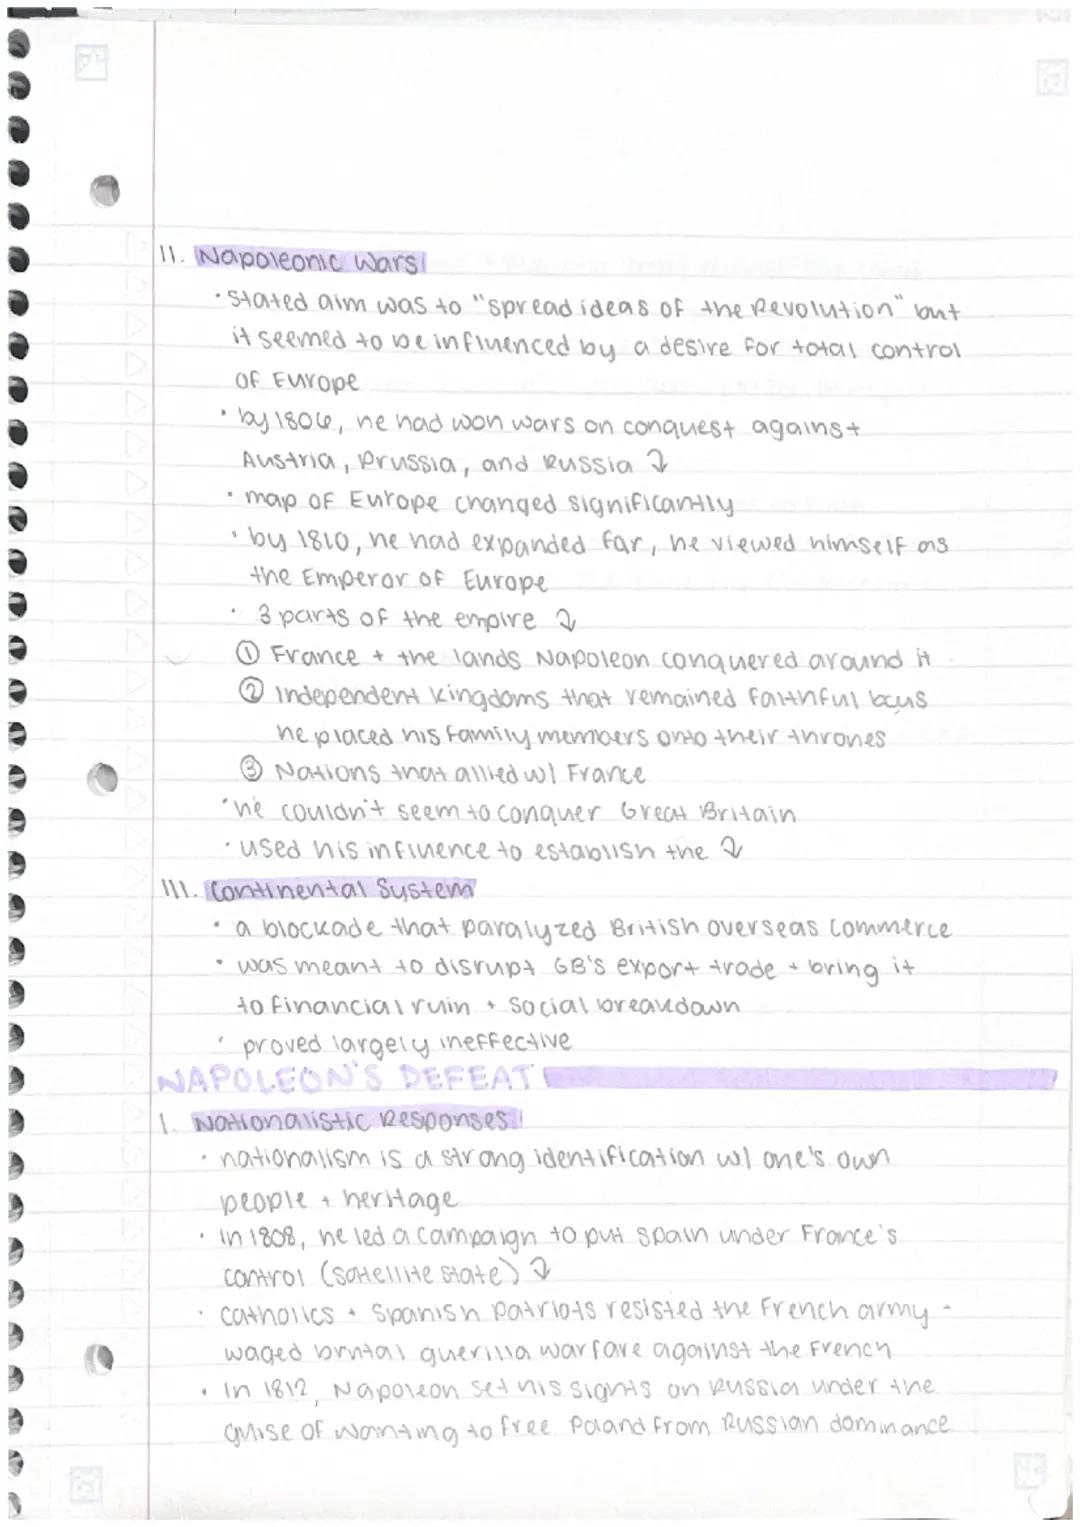 II. Napoleonic Wars
• stated aim was to "spread ideas of the Revolution" but
it seemed to be influenced by a desire for total control
of Europe
• by 1806, he had won wars on conquest against
Austria, Prussia, and Russia ↴
• map of Europe changed significantly
• by 1810, he had expanded far, he viewed himself as
the Emperor of Europe
• 3 parts of the empire ↴
① France + the lands Napoleon conquered around it
② Independent kingdoms that remained faithful bcus
he placed his family members onto their thrones
③ Nations that allied w/ France
• he couldn't seem to conquer Great Britain
• used his influence to establish the ↴
III. Continental System
• a blockade that paralyzed British overseas commerce
• was meant to disrupt GB's export trade + bring it
to financial ruin + social breakdown
• proved largely ineffective
NAPOLEON'S DEFEAT
I. Nationalistic Responses
• nationalism is a strong identification w/ one's own
people + heritage
• in 1808, he led a campaign to put Spain under France's
control (satellite state) ↴
• catholics + Spanish patriots resisted the French army -
waged brutal guerilla warfare against the French
• in 1812, Napoleon set his sights on Russia under the
guise of wanting to free Poland from Russian dominance